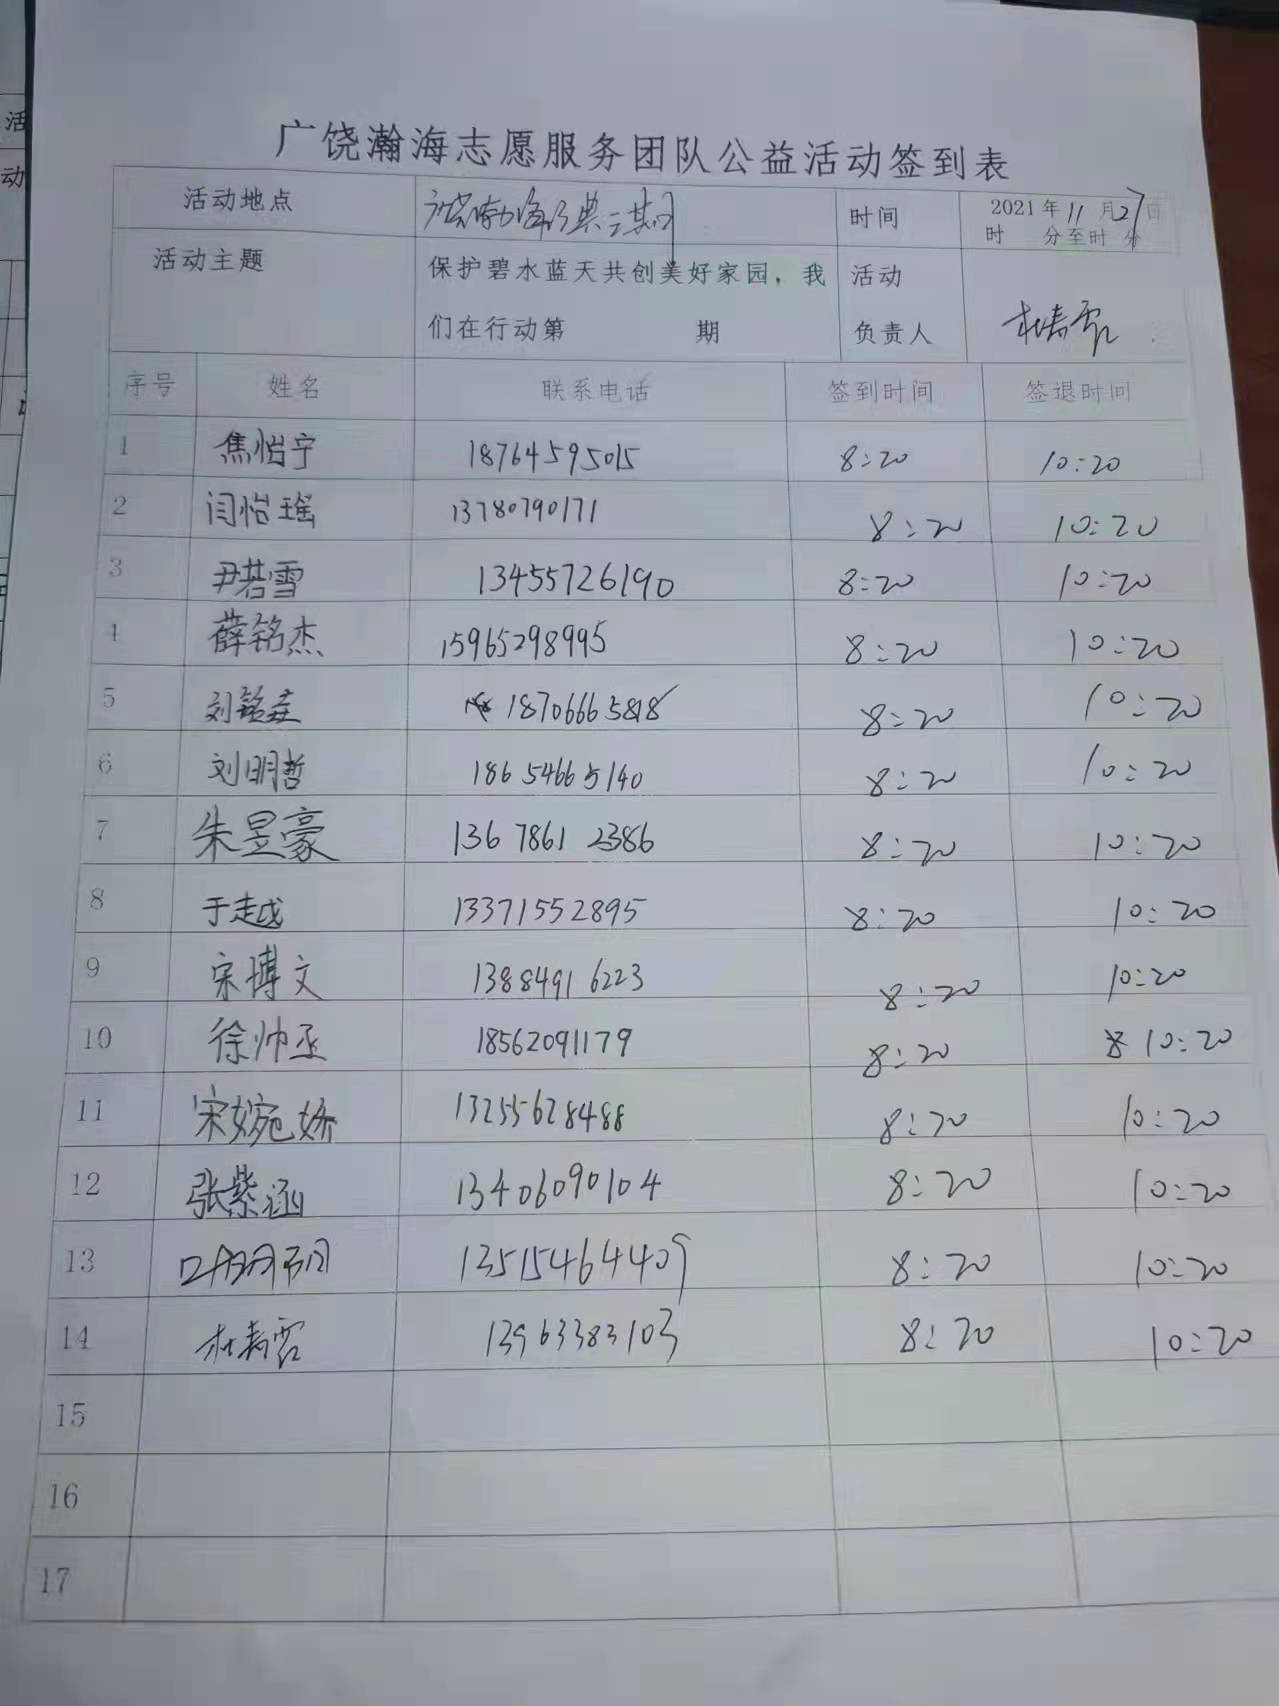 活
动
广饶瀚海志愿服务团队公益活动签到表
活动地点 时间 2021年11月27日
时 分至时 分
活动主题 保护碧水蓝天共创美好家园，我 活动
们在行动第 期 负责人
序号 姓名 联系电话 签到时间 签退时间
1 焦怡宁 18764595015 8:20 10:20
2 闫怡瑶 13780790171 8:20 10:20
3 尹若雪 13455726190 8:20 10:20
4 薛铭杰 15965298995 8:20 10:20
5 刘铭 18706665818 8:20 10:20
6 刘明哲 18654665140 8:20 10:20
7 朱昱豪 136 7861 2386 8:20 10:20
8 于越 13371552895 8:20 10:20
9 宋博文 1388491 6223 8:20 10:20
10 徐帅丞 18562091179 8:20 10:20
11 宋婉娇 13255628488 8:20 10:20
12 张紫涵 13406090104 8:20 10:20
13 13515464409 8:20 10:20
14 13963383103 8:20 10:20
15
16
17